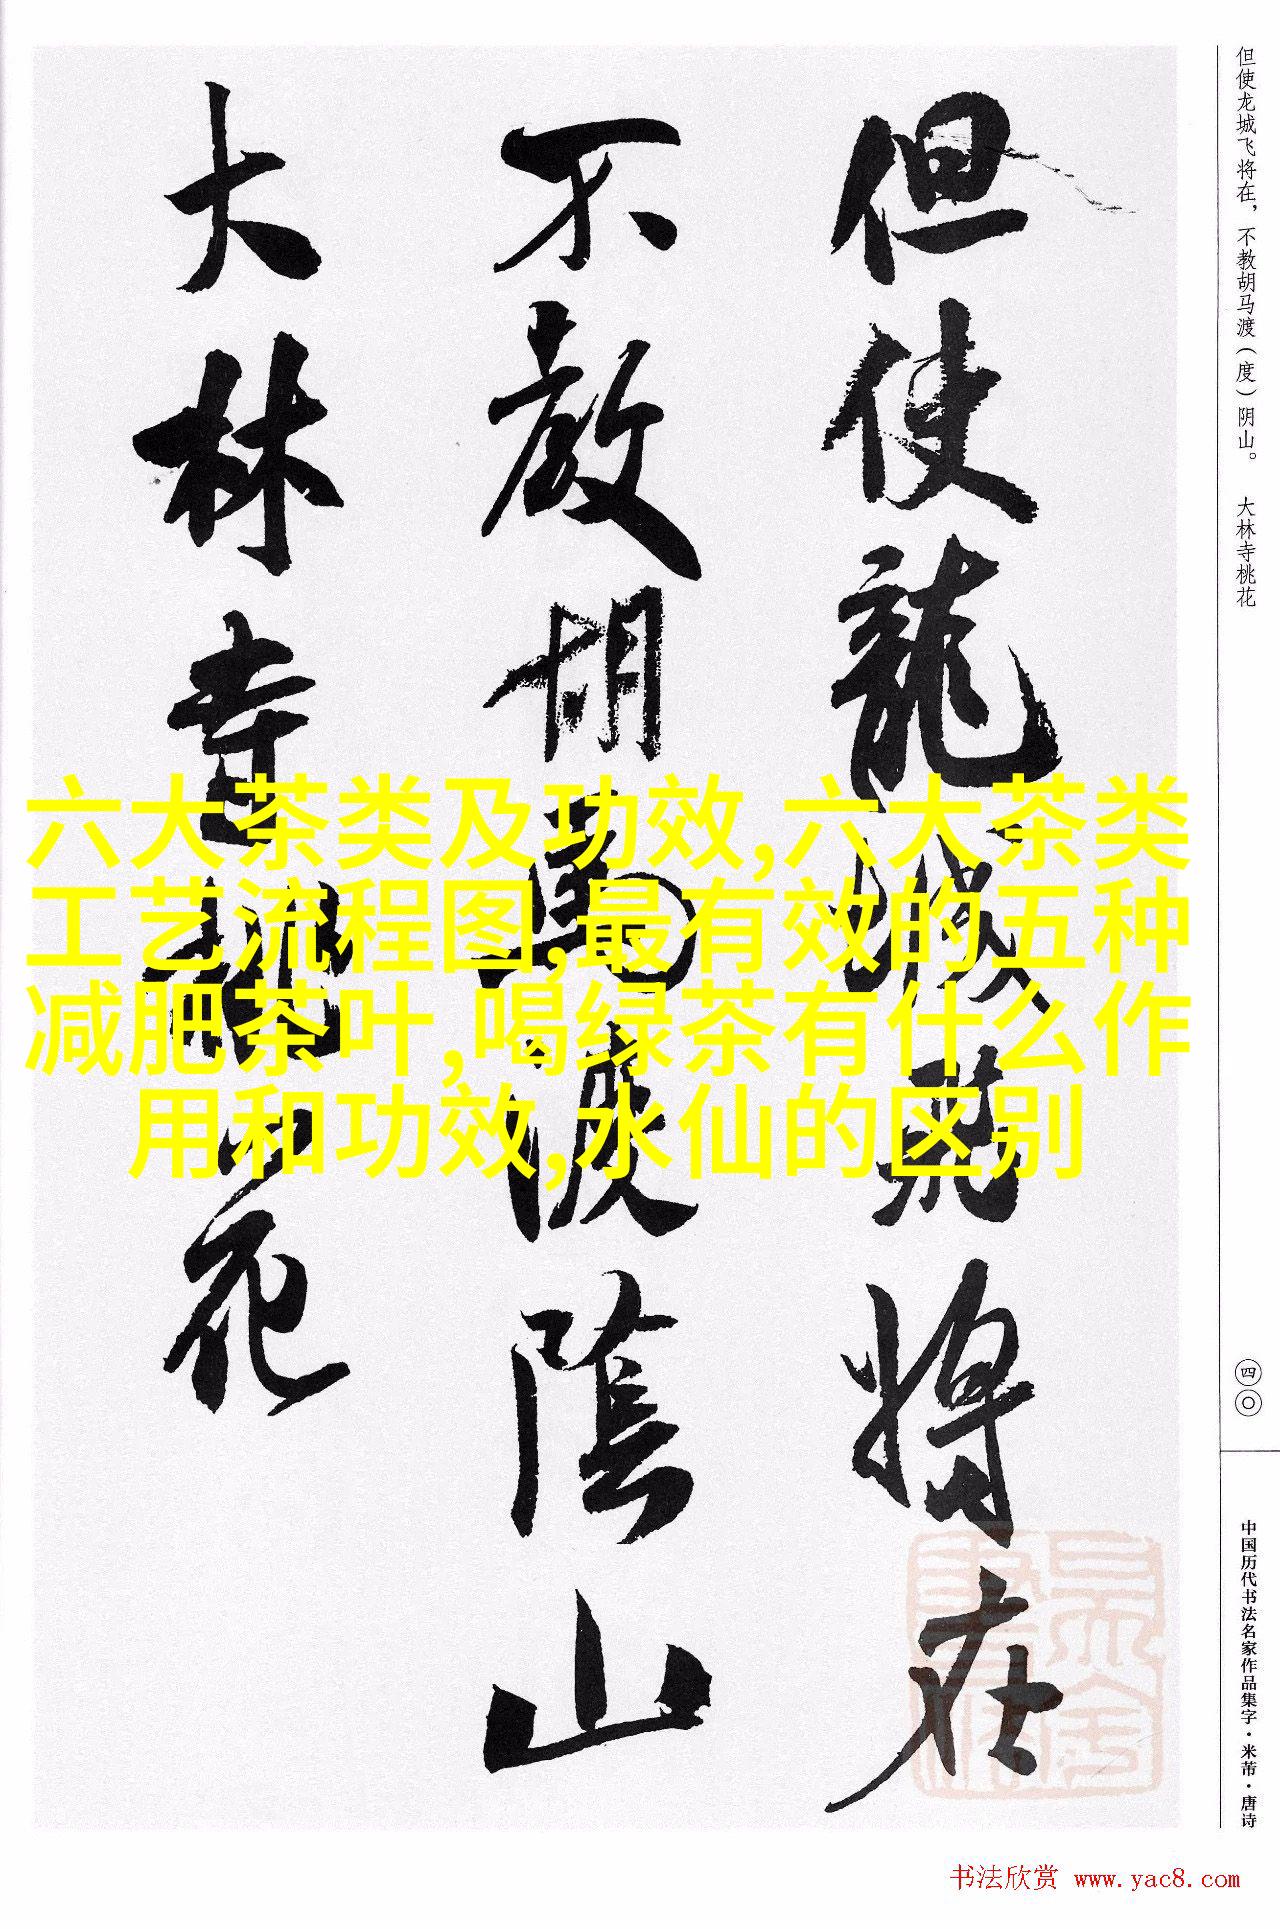 但使龙城飞将在，不教胡马渡（度）阴山。 大林寺桃花
但使龍城飛将在
不教胡馬渡陰山
大林寺桃花
六大茶类及功效,六大茶类
工艺流程图,最有效的五种
减肥茶叶,喝绿茶有什么作
用和功效,水仙的区别
四〇
中国历代书法名家作品集字·米芾·唐诗
书法欣赏 www.yac8.com